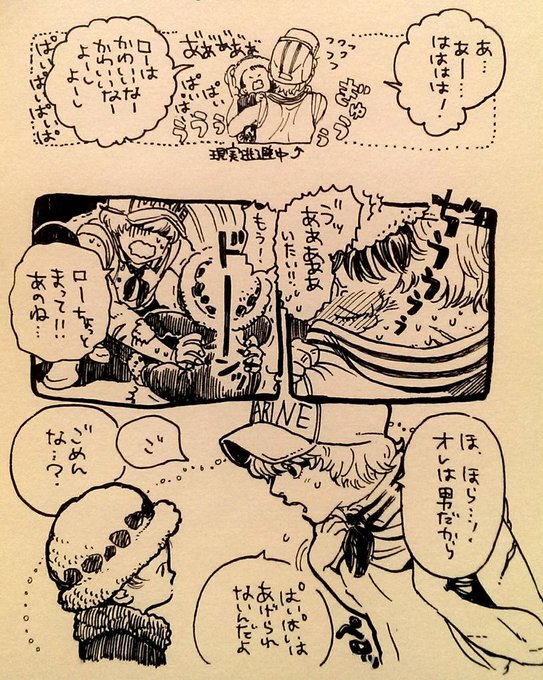 あ…
あー…
はははは！
ぎゅう
ああああああ
ぱいぱい
ううう
ローは
かわいいなー
かわいいなー
よーし
よーし
現実逃避中
ぢうううう
うッ
ああああ
いたいい!!
もう！
ドーーンッ
ローちょっと
まって!!!
あのね…
ARINE
ほ、ほら…！
オレは男だから
ぱいぱいは
あげられ
ないんだよ
ご
ごめん
な…？